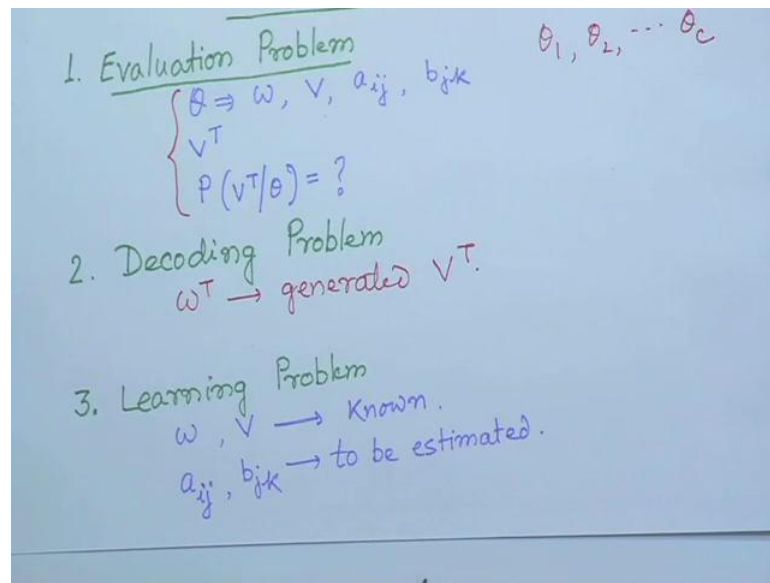 1. Evaluation Problem
θ₁, θ₂, ... θ_c
θ ⇒ ω, V, a_ij, b_jk
V^T
P(V^T/θ) = ?
2. Decoding Problem
ω^T → generated V^T.
3. Learning Problem
ω, V → Known.
a_ij, b_jk → to be estimated.